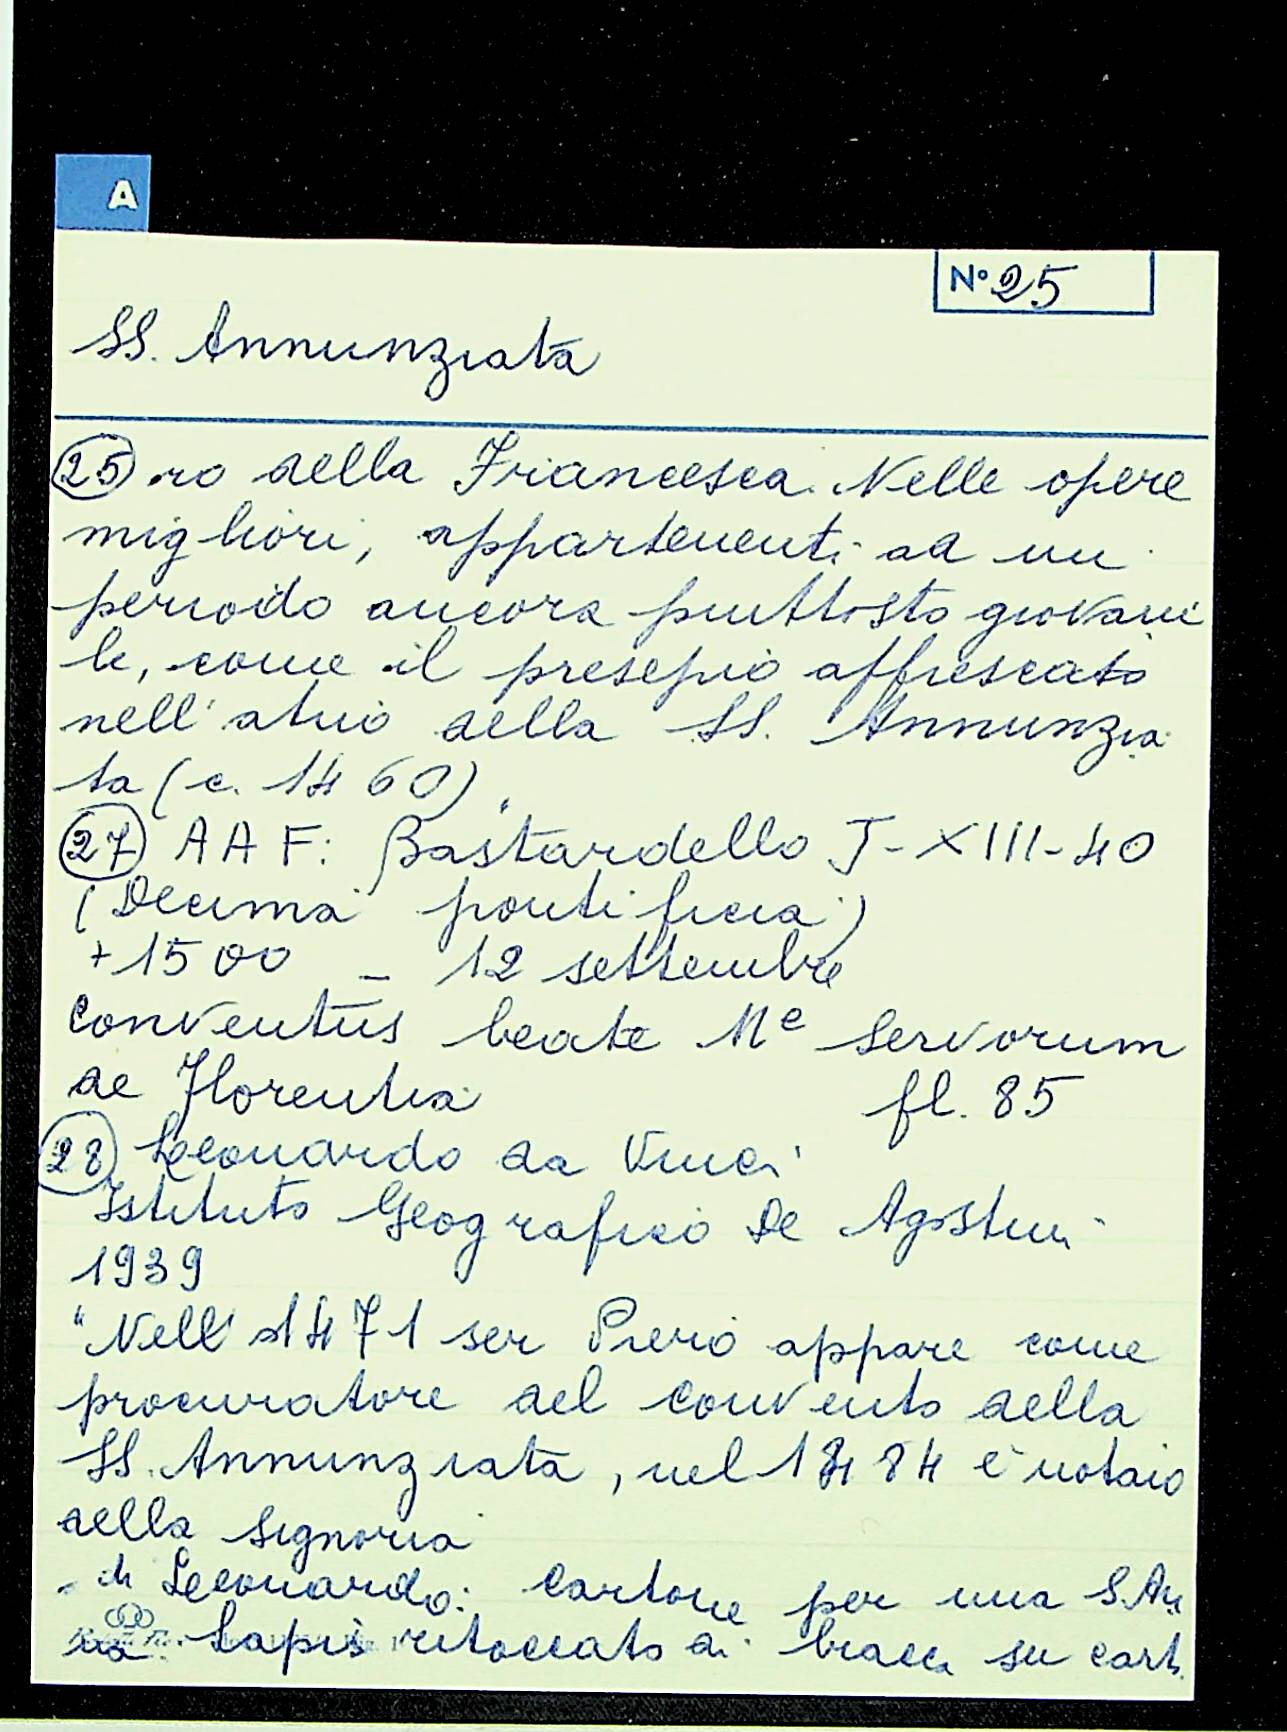 A
N° 25
SS. Annunziata
25 ro della Francesca. Nelle opere
migliori, appartenenti ad un
periodo ancora piuttosto giovani
le, come il presepio affrescato
nell'atrio della SS. Annunzia
ta (c. 1460).
27 AAF: Bastardello J-XIII-40
(Decima pontificia)
+1500 - 12 settembre
Conventus beate Me Servorum
de Florentia fl. 85
28 Leonardo da Vinci
Istituto Geografico De Agostini
1939
"Nell 1471 ser Piero appare come
procuratore del convento della
SS. Annunziata, nel 1484 è notaio
della Signoria
. di Leonardo: Cartone per una S. An
na. Lapis ritoccato di biacca su cart.